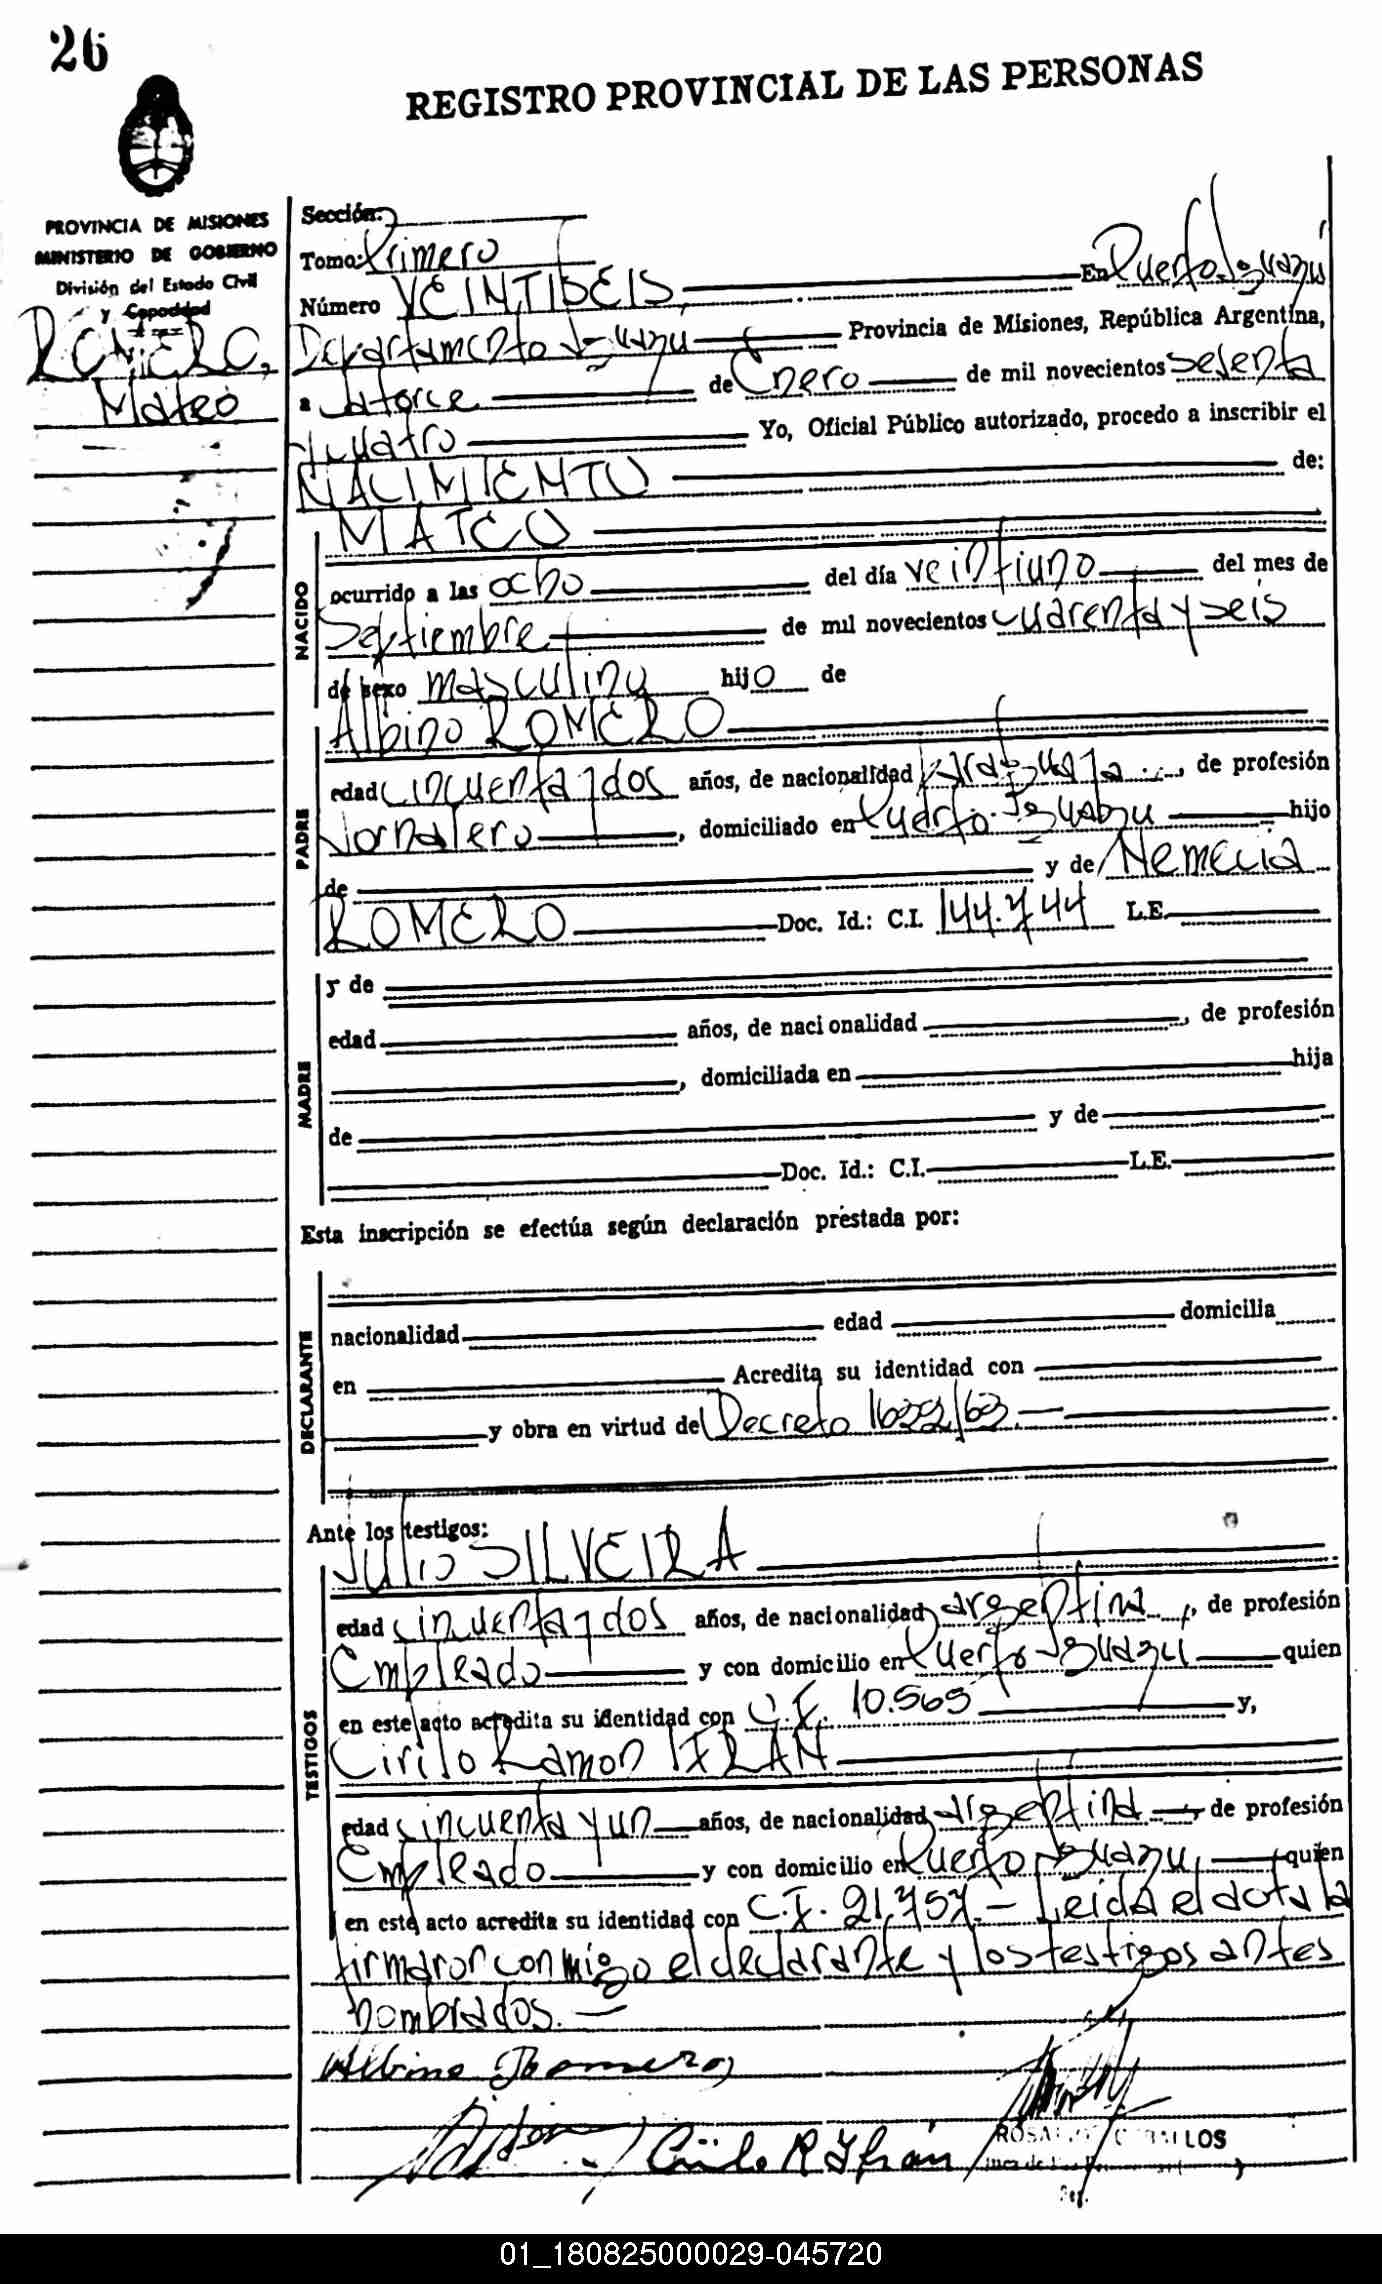 26
REGISTRO PROVINCIAL DE LAS PERSONAS
PROVINCIA DE MISIONES
MINISTERIO DE GOBIERNO
División del Estado Civil
y Capacidad
ROMERO,
Mateo
Sección:
Tomo: Primero
Número VEINTISEIS, En Puerto Iguazú
Departamento Iguazu Provincia de Misiones, República Argentina,
a Catorce de Enero de mil novecientos sesenta
y cuatro Yo, Oficial Público autorizado, procedo a inscribir el
NACIMIENTO de:
NACIDO
MATEO
ocurrido a las ocho del día veintiuno del mes de
Septiembre de mil novecientos cuarenta y seis
de sexo masculino hijo de
PADRE
Albino ROMERO
edad cincuenta y dos años, de nacionalidad paraguaya, de profesión
Jornalero, domiciliado en Puerto Iguazu hijo
de y de Nemecia
ROMERO Doc. Id.: C.I. 144.744 L.E.
MADRE
y de
edad años, de nacionalidad , de profesión
, domiciliada en hija
de y de
Doc. Id.: C.I. L.E.
Esta inscripción se efectúa según declaración prestada por:
DECLARANTE
nacionalidad edad domicilia
en Acredita su identidad con
y obra en virtud de Decreto
Ante los testigos:
TESTIGOS
Julio SILVEIRA
edad cincuenta y dos años, de nacionalidad argentina, de profesión
Empleado y con domicilio en Puerto Iguazu quien
en este acto acredita su identidad con C.I. 10.565 y,
Cirilo Ramon IFRAN
edad cincuenta y un años, de nacionalidad argentina, de profesión
Empleado y con domicilio en Puerto Iguazu, quien
en este acto acredita su identidad con C.I. 21.757.- Leida el acta la
firmaron conmigo el declarante y los testigos antes
nombrados.-
Albino Romero
Cirilo R Ifrán
01_180825000029-045720